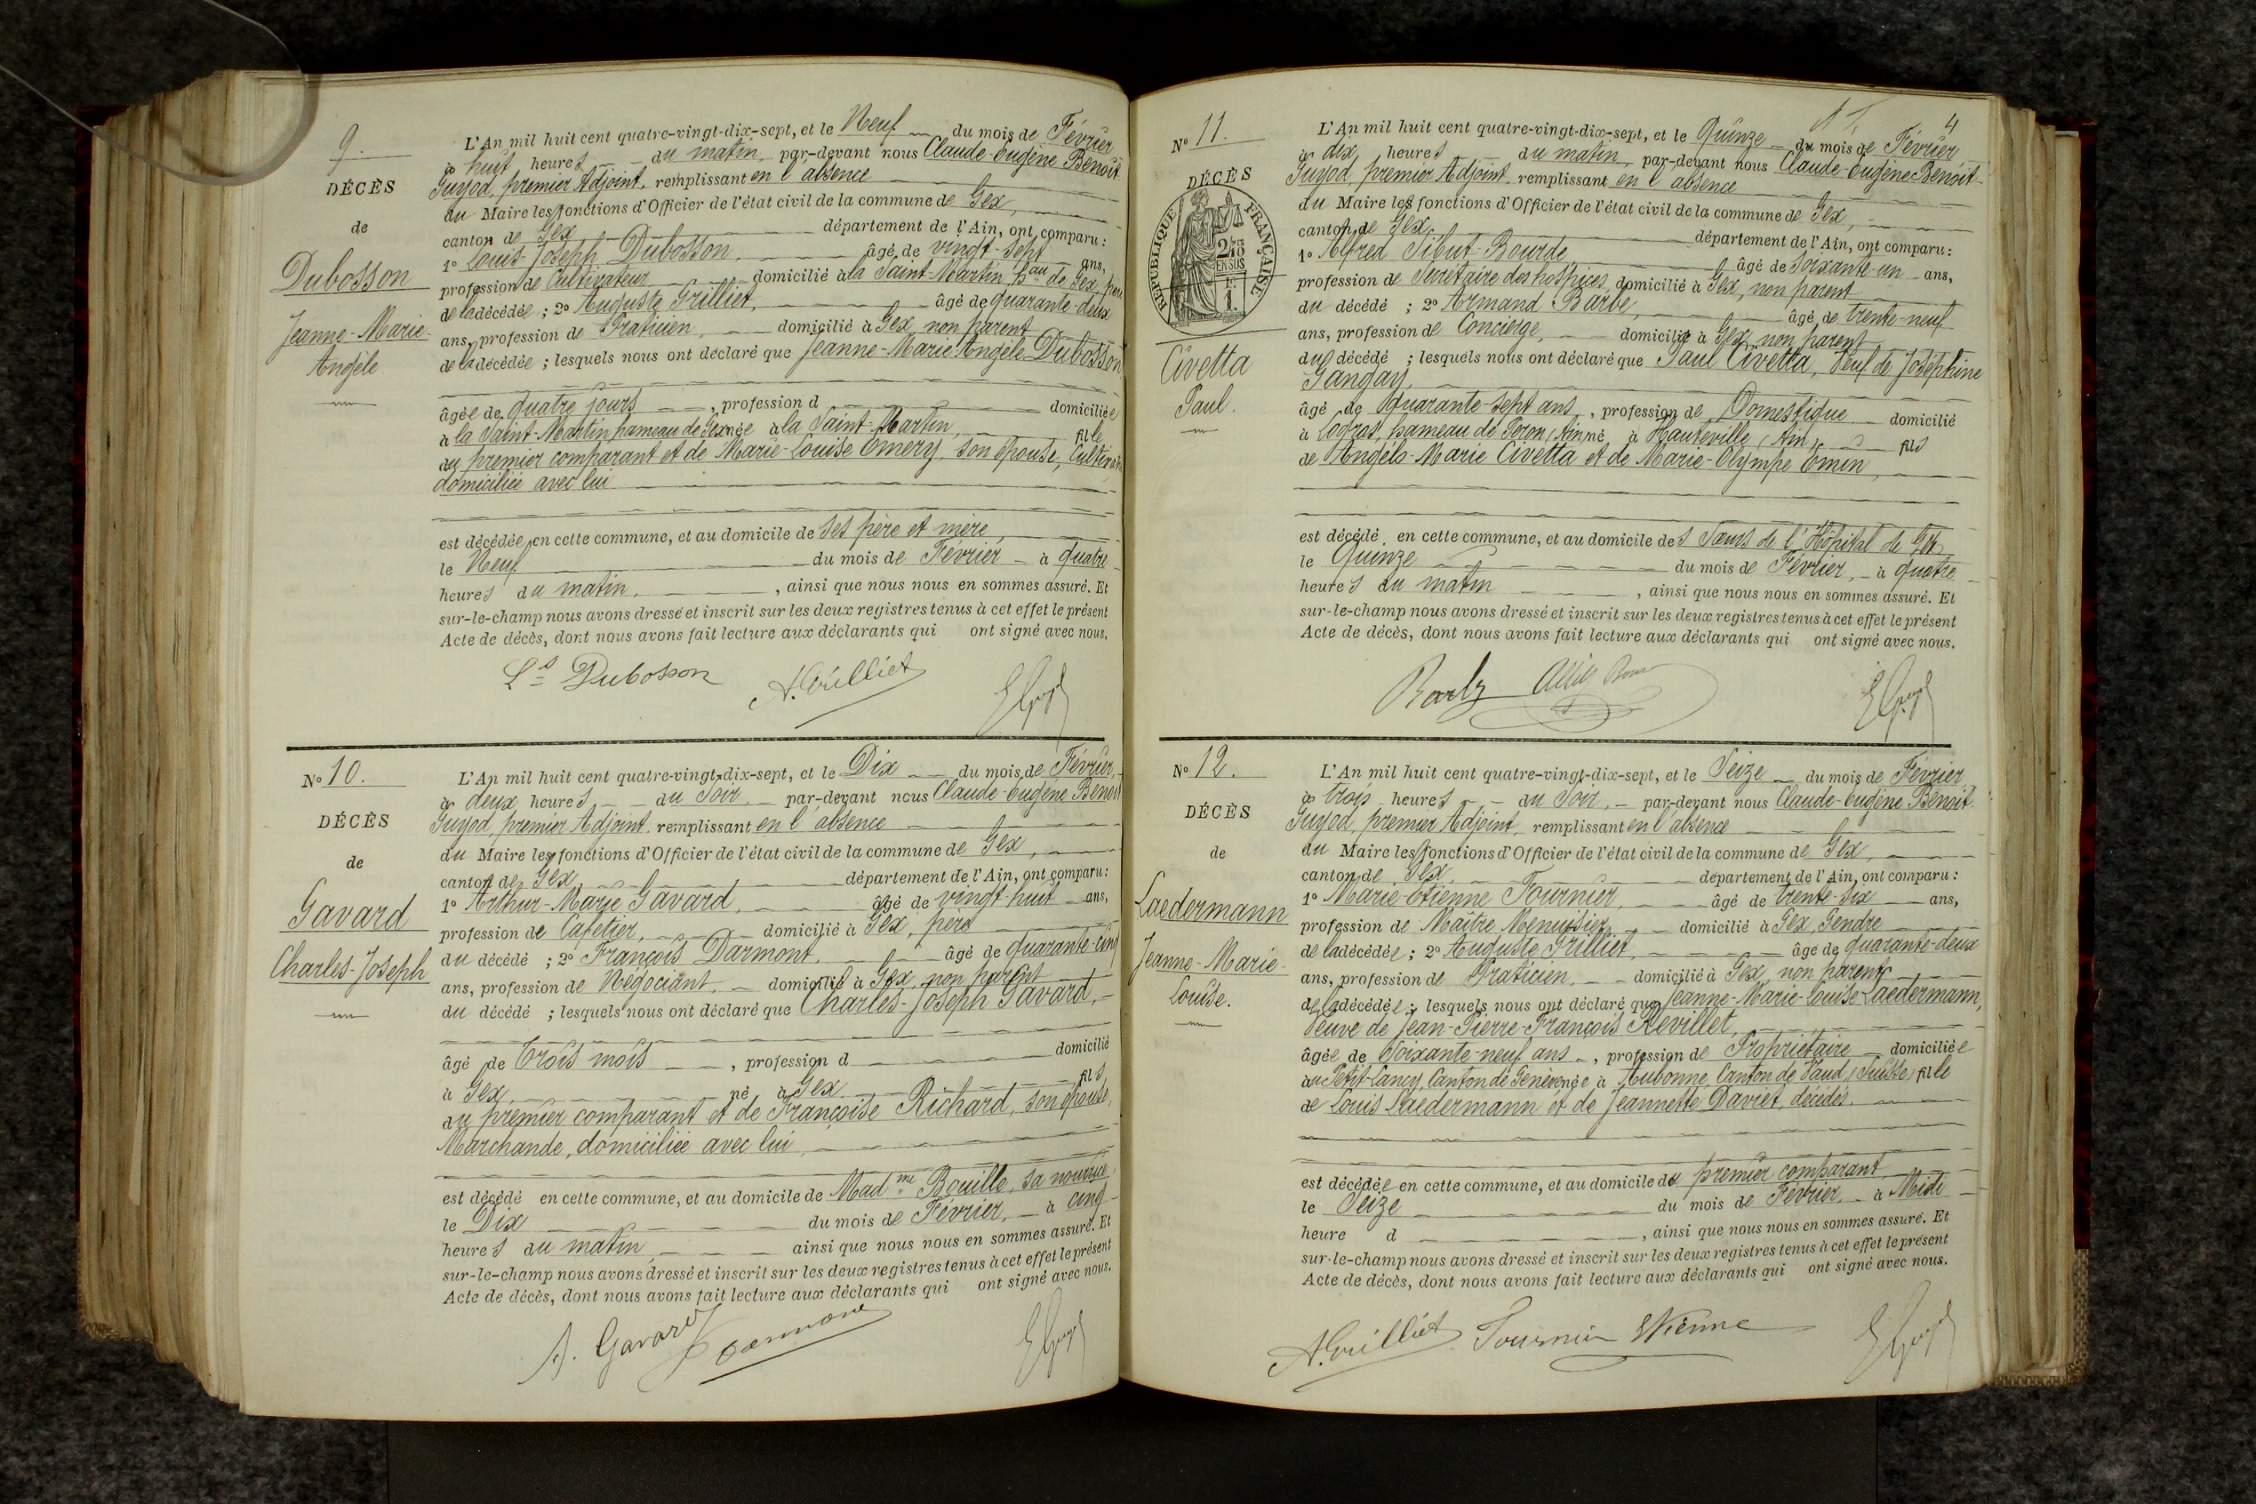 9.
DÉCÈS
de
Dubosson
Jeanne-Marie-
Angèle
L'An mil huit cent quatre-vingt-dix-sept, et le Neuf du mois de Février
à huit heures du matin, par-devant nous Claude-Eugène Benoît
Guyod, premier Adjoint, remplissant en l'absence
du Maire les fonctions d'Officier de l'état civil de la commune de Gex,
canton de Gex département de l'Ain, ont comparu:
1º Louis-Joseph Dubosson, âgé de vingt-sept ans,
profession de Cultivateur domicilié à la Saint-Martin, hau de Gex, père
de la décédée; 2º Auguste Grilliet, âgé de quarante-deux
ans, profession de Praticien, domicilié à Gex, non parent
de la décédée; lesquels nous ont déclaré que Jeanne-Marie Angèle Dubosson
âgée de quatre jours, profession d domiciliée
à la Saint-Martin hameau de Gex née à la Saint-Martin, fille
du premier comparant et de Marie-Louise Emery, son épouse,
domiciliée avec lui
est décédée en cette commune, et au domicile de ses père et mère
le Neuf du mois de Février à quatre
heures du matin, ainsi que nous nous en sommes assuré. Et
sur-le-champ nous avons dressé et inscrit sur les deux registres tenus à cet effet le présent
Acte de décès, dont nous avons fait lecture aux déclarants qui ont signé avec nous.
Ls Dubosson A. Grilliet
Nº 10.
DÉCÈS
de
Gavard
Charles-Joseph
L'An mil huit cent quatre-vingt-dix-sept, et le Dix du mois de Février,
à deux heures du Soir, par-devant nous Claude-Eugène Benoît
Guyod, premier Adjoint, remplissant en l'absence
du Maire les fonctions d'Officier de l'état civil de la commune de Gex,
canton de Gex, département de l'Ain, ont comparu:
1º Arthur-Marie Gavard, âgé de vingt-huit ans,
profession de Cafetier, domicilié à Gex, père
du décédé; 2º François Darmont, âgé de quarante-cinq
ans, profession de Négociant, domicilié à Gex, non parent
du décédé; lesquels nous ont déclaré que Charles-Joseph Gavard,
âgé de Trois mois, profession d domicilié
à Gex, né à Gex, fils
du premier comparant et de Françoise Richard, son épouse,
Marchande, domiciliée avec lui,
est décédé en cette commune, et au domicile de Madme Bouille, sa nourrice
le Dix du mois de Février, à cinq
heures du matin, ainsi que nous nous en sommes assuré. Et
sur-le-champ nous avons dressé et inscrit sur les deux registres tenus à cet effet le présent
Acte de décès, dont nous avons fait lecture aux déclarants qui ont signé avec nous.
A. Gavard
4
Nº 11.
DÉCÈS
RÉPUBLIQUE FRANÇAISE
EN SUS
Civetta
Paul.
L'An mil huit cent quatre-vingt-dix-sept, et le Quinze du mois de Février
à dix heures du matin, par-devant nous Claude-Eugène Benoît-
Guyod, premier Adjoint, remplissant en l'absence
du Maire les fonctions d'Officier de l'état civil de la commune de Gex,
canton de Gex, département de l'Ain, ont comparu:
1º Alfred Sibut-Bourde âgé de soixante-un ans,
profession de Secrétaire des hospices, domicilié à Gex, non parent
du décédé; 2º Armand Barbe, âgé de trente-neuf
ans, profession de Concierge, domicilié à Gex, non parent
du décédé; lesquels nous ont déclaré que Paul Civetta, Veuf de Joséphine
Gangay,
âgé de quarante-sept ans, profession de Domestique domicilié
à Logras, hameau de Péron (Ain) né à Hauteville (Ain), fils
de Angelo-Marie Civetta et de Marie-Olympe Emin,
est décédé en cette commune, et au domicile des Sœurs de l'Hôpital de Gex
le Quinze du mois de Février, à quatre
heures du matin, ainsi que nous nous en sommes assuré. Et
sur-le-champ nous avons dressé et inscrit sur les deux registres tenus à cet effet le présent
Acte de décès, dont nous avons fait lecture aux déclarants qui ont signé avec nous.
Nº 12.
DÉCÈS
de
Laedermann
Jeanne-Marie-
Louise.
L'An mil huit cent quatre-vingt-dix-sept, et le Seize du mois de Février
à trois heures du Soir, par-devant nous Claude-Eugène Benoît
Guyod, premier Adjoint, remplissant en l'absence
du Maire les fonctions d'Officier de l'état civil de la commune de Gex,
canton de Gex département de l'Ain, ont comparu:
1º Marie-Etienne Fournier, âgé de trente-six ans,
profession de Maître Menuisier, domicilié à Gex, Gendre
de la décédée; 2º Auguste Grilliet, âgé de quarante-deux
ans, profession de Praticien, domicilié à Gex, non parent
de la décédée; lesquels nous ont déclaré que Jeanne-Marie-Louise Laedermann,
Veuve de Jean-Pierre-François Revillet,
âgée de Soixante-neuf ans, profession de Propriétaire domiciliée
au Petit-Lancy, Canton de Genève née à Aubonne, Canton de Vaud, (Suisse) fille
de Louis Laedermann et de Jeannette Daviet, décédés.
est décédée en cette commune, et au domicile du premier comparant,
le Seize du mois de Février, à Midi
heure d, ainsi que nous nous en sommes assuré. Et
sur-le-champ nous avons dressé et inscrit sur les deux registres tenus à cet effet le présent
Acte de décès, dont nous avons fait lecture aux déclarants qui ont signé avec nous.
A. Grilliet Fournier Etienne